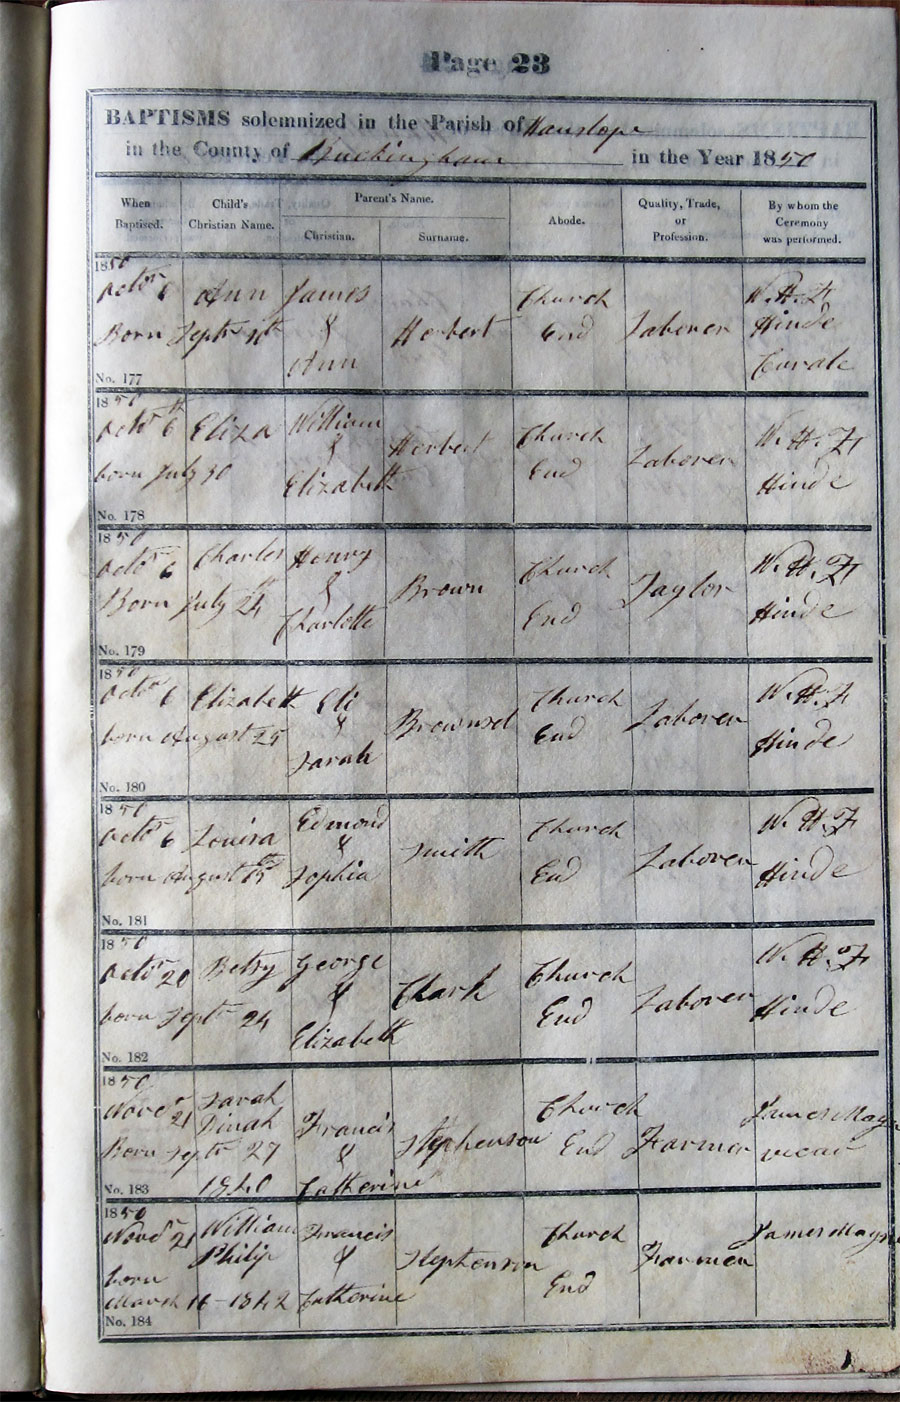 Page 23
BAPTISMS solemnized in the Parish of Hanslope
in the County of Buckingham in the Year 1850
When Baptised.
Child's Christian Name.
Parent's Name.
Christian.
Surname.
Abode.
Quality, Trade, or Profession.
By whom the Ceremony was performed.
1850
Octor 6 Ann James W. H. F
& Herbert Church End Laborer Hinde
Born Septr
Ann Curate
No. 177
1850
Octor 6th Eliza William
& Herbert Church End Laborer W. H. F
born July 30 Elizabeth Hinde
No. 178
1850
Octor 6 Charles Henry Church W. H. F
& Brown Taylor
Born July 24th Charlotte End Hinde
No. 179
1850
Octor 6 Elizabeth Eli Church W. H. F
& Brownsel Laborer
born August 25 Sarah End Hinde
No. 180
1850
Octor 6 Louisa Edmond Church W. H. F
& Smith Laborer
born August Sophia End Hinde
No. 181
1850
Octor 20 Betsy George Church W. H. F
& Clark Laborer
born Septr 24 Elizabeth End Hinde
No. 182
1850
Novr 21 Sarah Dinah Francis Church James
& Stephenson End Farmer vicar
Born Septr 27
1840 Catherine
No. 183
1850
Novr 21 William Francis Church James
Philip & Stephenson Farmer
born End
March 16 - 1842 Catherine
No. 184